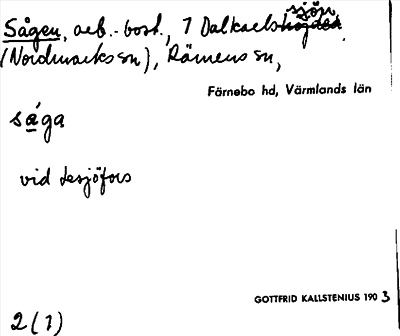 sjön
Sågen, arb.-bost., 7 Dalkarlshöjden
(Nordmarks sn), Rämens sn,
Färnebo hd, Värmlands län
såga
vid Lesjöfors
GOTTFRID KALLSTENIUS 1903
2(1)